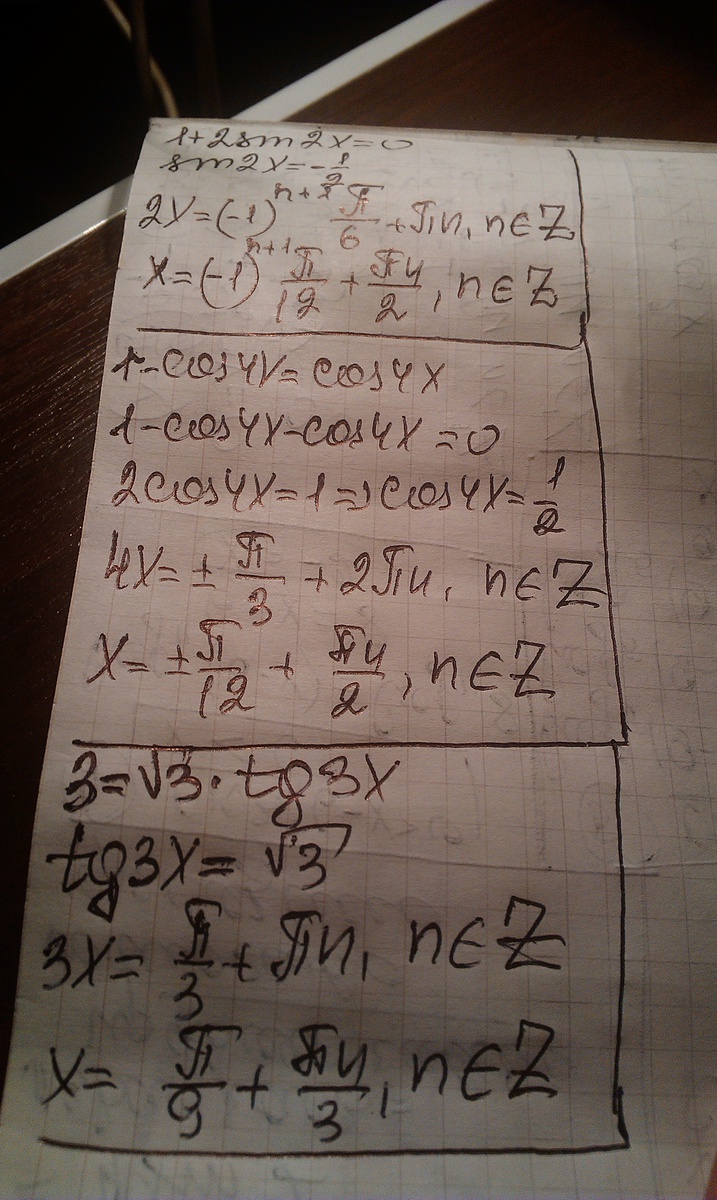 1+2sin2x=0
sin2x=-1/2
2x=(-1)^(n+1) π/6 + πn, n∈Z
x=(-1)^(n+1) π/12 + πn/2, n∈Z
1-cos4x=cos4x
1-cos4x-cos4x=0
2cos4x=1=>cos4x=1/2
4x=± π/3 + 2πn, n∈Z
x=± π/12 + πn/2, n∈Z
3=√3·tg3x
tg3x=√3
3x= π/3 + πn, n∈Z
x= π/9 + πn/3, n∈Z